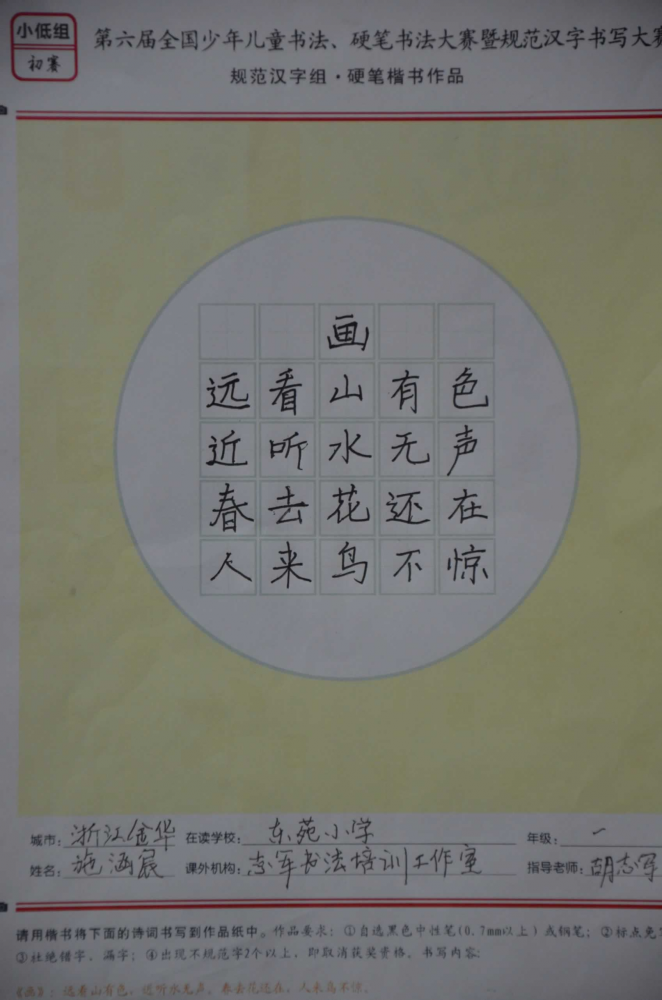 小低组
初赛
第六届全国少年儿童书法、硬笔书法大赛暨规范汉字书写大赛
规范汉字组·硬笔楷书作品
画
远看山有色
近听水无声
春去花还在
人来鸟不惊
城市: 浙江金华 在读学校: 东苑小学 年级: 一
姓名: 施涵宸 课外机构: 志军书法培训工作室 指导老师: 胡志军
请用楷书将下面的诗词书写到作品纸中。作品要求: ①自选黑色中性笔(0.7mm以上)或钢笔; ②标点免
③杜绝错字、漏字; ④出现不规范字2个以上, 即取消获奖资格。书写内容:
《画》: 远看山有色, 近听水无声。春去花还在, 人来鸟不惊。